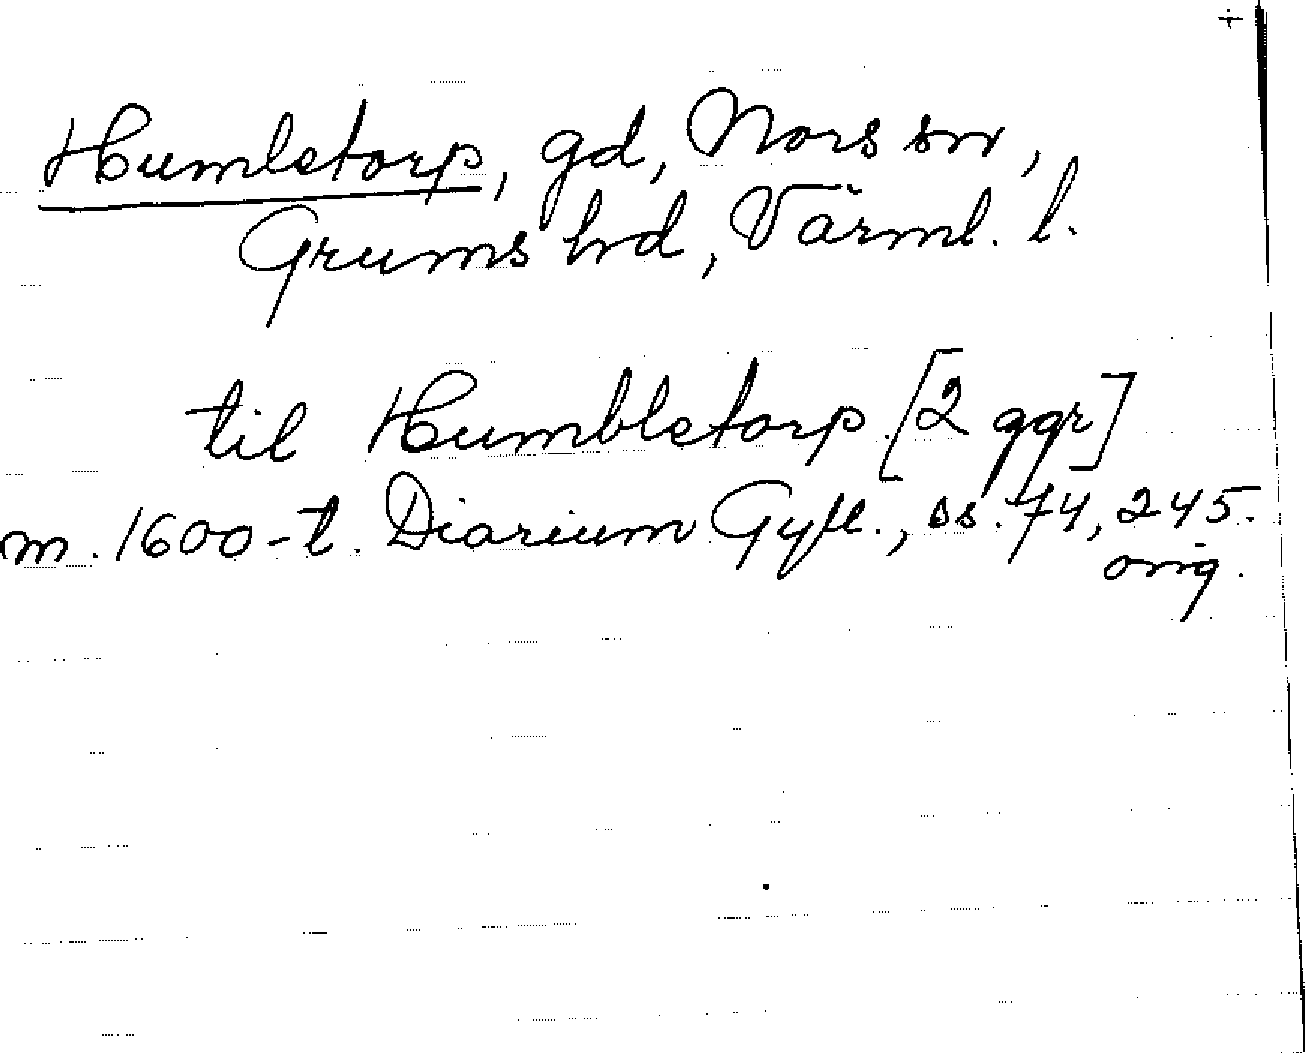 +
Humletorp, gd, Nors sn,
Grums hd, Värml. l.
til Humbletorp [2 ggr]
m. 1600-t. Diarium Gyll., ss. 74, 245.
orig.